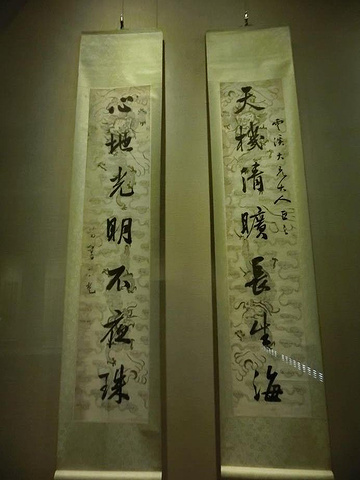 天機清曠長生海
心地光明不夜珠